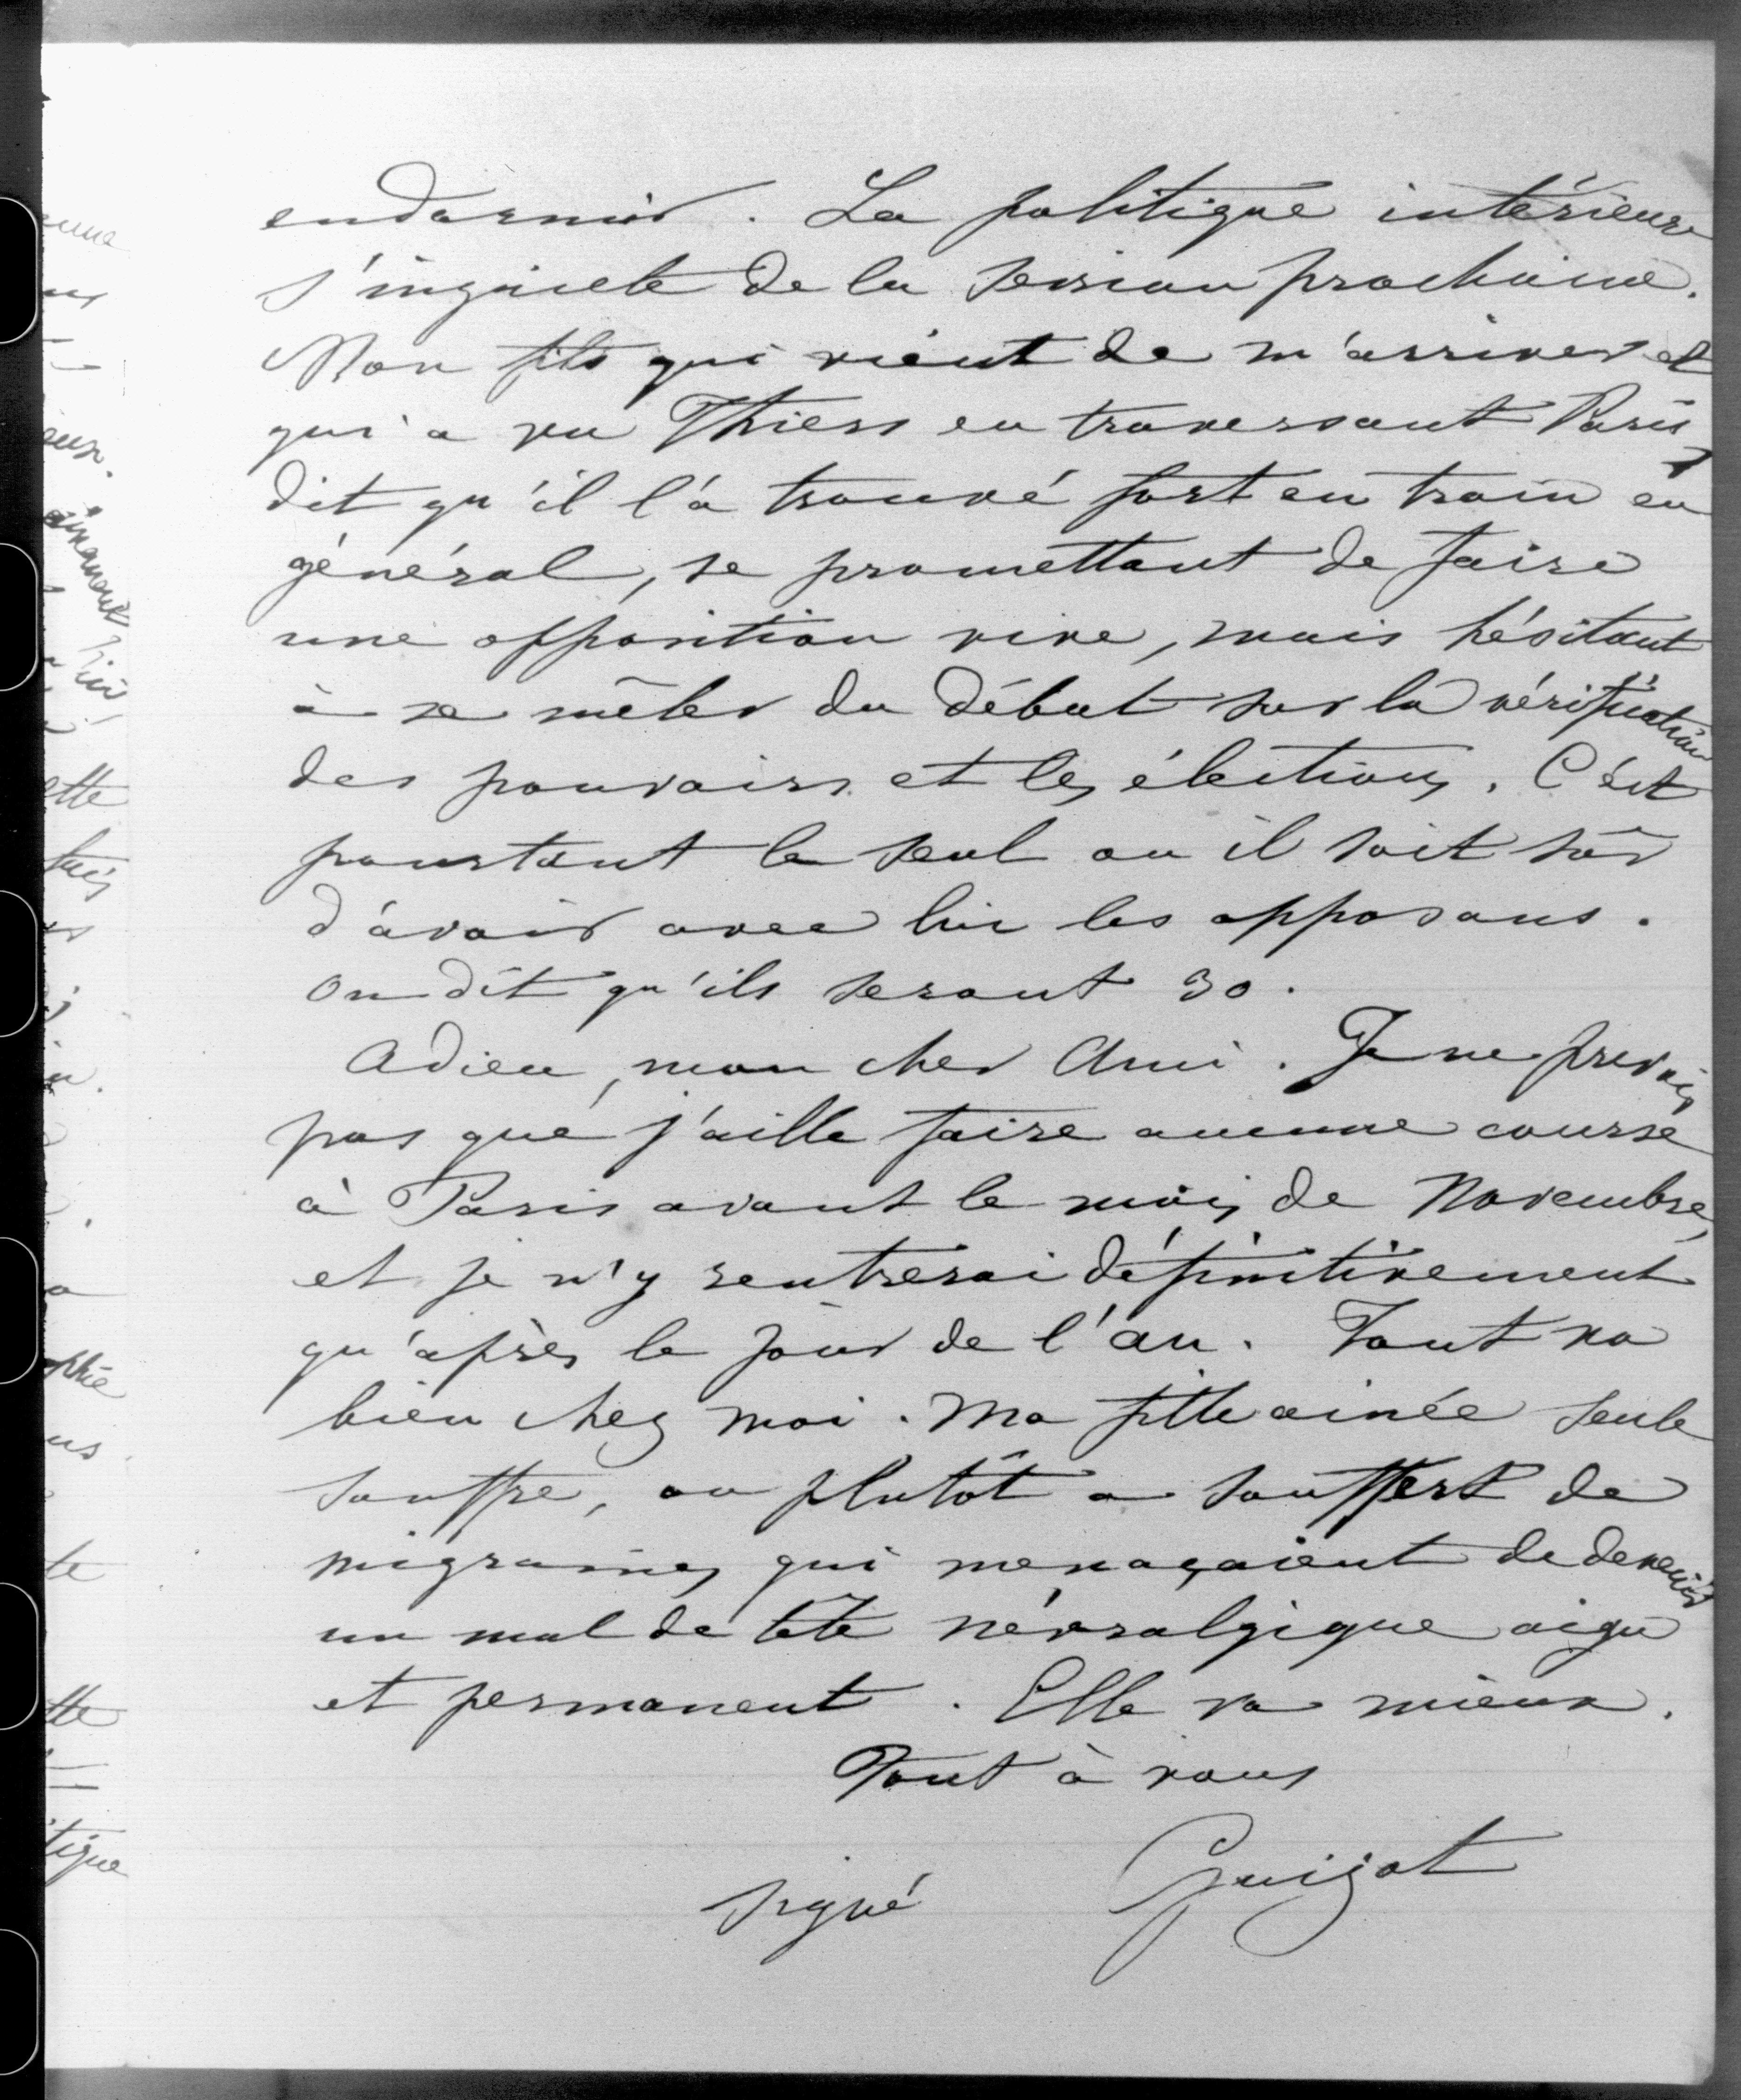 endormir. La politique intérieure
s'inquiete de la session prochaine.
Mon fils qui vient de m'arriver et
qui a vu Thiers en traversant Paris,
dit qu'il l'a trouvé fort en train en
général, se promettant de faire
une opposition vive, mais hésitant
à se mêler du débat sur la vérification
des pouvoirs et les élections. C'est
pourtant le seul ou il soit sûr
d'avoir avec lui les opposans.
On dit qu'ils seront 30.
Adieu, mon cher Ami. Je ne prevois
pas que j'aille faire aucune course
à Paris avant le mois de Novembre,
et je n'y rentrerai définitivement
qu'après le jour de l'an. Tout va
bien chez moi. Ma fille ainée seule
souffre, ou plutôt a souffert de
migraines qui menaçaient de devenir
un mal de tête névralgique aigu
et permanent. Elle va mieux.
Tout à vous
signé Guizot